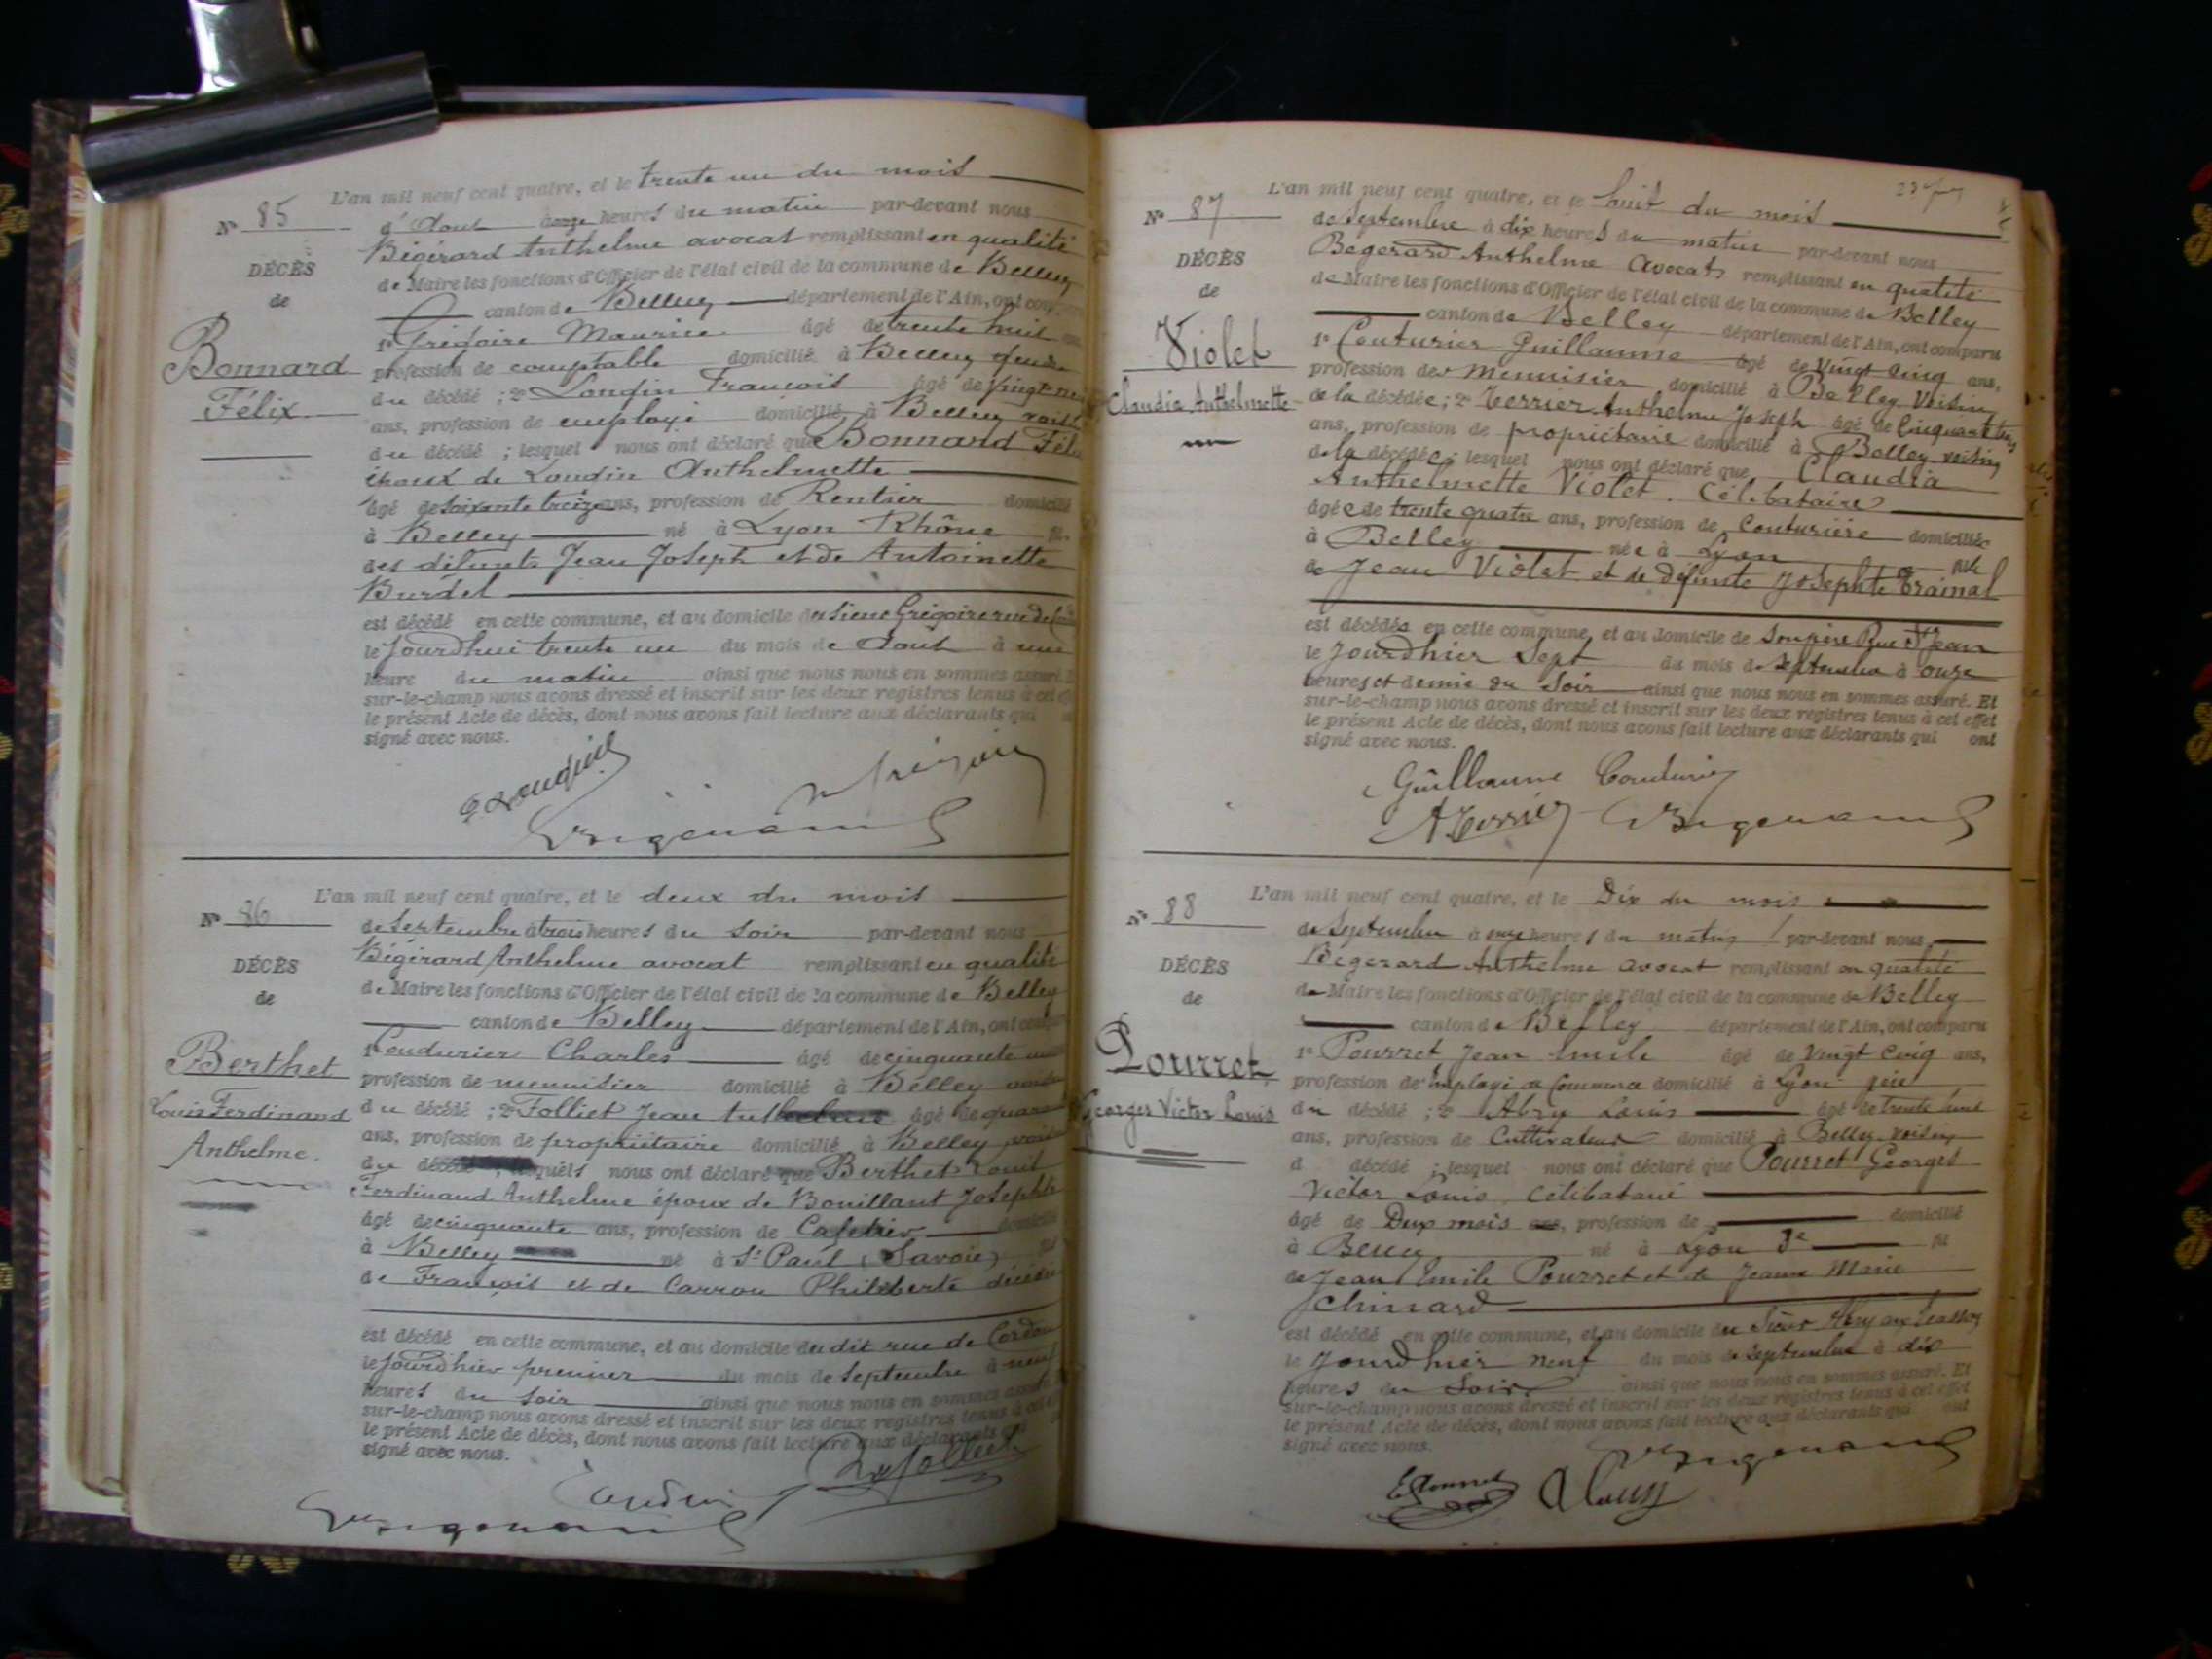 L'an mil neuf cent quatre, et le trente un du mois
N° 85
d'Aout onze heures du matin par-devant nous
Bégérard Anthelme avocat remplissant en qualité
DÉCÈS
de Maire les fonctions d'Officier de l'état civil de la commune de Belley
de
canton de Belley département de l'Ain, ont
1° Grégoire Maurice âgé de trente huit
Bonnard
profession de comptable domicilié à Belley
Félix
du décédé ; 2° Londin François âgé de
ans, profession de employé domicilié à Belley voisin
du décédé ; lesquel nous ont déclaré que Bonnard Félix
époux de Londin Anthelmette
âgé de soixante treize ans, profession de Rentier domicilié
à Belley né à Lyon Rhône
des défunts Jean Joseph et de Antoinette
Burdel
est décédé en cette commune, et au domicile du sieur Grégoire rue de
le jourdhui trente un du mois de Aout à une
heure du matin ainsi que nous nous en sommes assuré.
sur-le-champ nous avons dressé et inscrit sur les deux registres tenus à cet
le présent Acte de décès, dont nous avons fait lecture aux déclarants qui
signé avec nous.
L'an mil neuf cent quatre, et le deux du mois
N° 86
de Septembre à trois heures du soir par-devant nous
Bégérard Anthelme avocat remplissant en qualité
DÉCÈS
de Maire les fonctions d'Officier de l'état civil de la commune de Belley
de
canton de Belley département de l'Ain, ont
1° Coudurier Charles âgé de cinquante
Berthet
profession de menuisier domicilié à Belley
Louis Ferdinand
du décédé ; 2° Folliet Jean âgé de
ans, profession de propriétaire domicilié à Belley
Anthelme.
du décédé ; lesquels nous ont déclaré que Berthet Louis
Ferdinand Anthelme époux de Bouillant Josephte
âgé de cinquante ans, profession de Cafetier domicilié
à Belley né à St Paul (Savoie)
de François et de Carrou Philiberte
est décédé en cette commune, et au domicile dudit rue de Cordon
le jourdhier premier du mois de Septembre à neuf
heures du soir ainsi que nous nous en sommes
sur-le-champ nous avons dressé et inscrit sur les deux registres tenus à cet
le présent Acte de décès, dont nous avons fait lecture aux déclarants
signé avec nous.
L'an mil neuf cent quatre, et le huit du mois
N° 87
de Septembre à dix heures du matin par-devant nous
Bégérard Anthelme Avocat remplissant en qualité
DÉCÈS
de Maire les fonctions d'Officier de l'état civil de la commune de Belley
de
canton de Belley département de l'Ain, ont comparu
1° Couturier Guillaume âgé de Vingt cinq ans,
Violet
profession de Menuisier domicilié à Belley Voisin
Claudia Anthelmette
de la décédée ; 2° Terrier Anthelme Joseph âgé de Cinquante
ans, profession de propriétaire domicilié à Belley voisin
de la décédée ; lesquel nous ont déclaré que Claudia
Anthelmette Violet. Célibataire
âgée de trente quatre ans, profession de Couturière domiciliée
à Belley née à Lyon fille
de Jean Violet et de défunte Josephte Trainal
est décédée en cette commune, et au domicile de Son père Rue St Jean
le Jourdhier Sept du mois de Septembre à onze
heures et demie du Soir ainsi que nous nous en sommes assuré. Et
sur-le-champ nous avons dressé et inscrit sur les deux registres tenus à cet effet
le présent Acte de décès, dont nous avons fait lecture aux déclarants qui ont
signé avec nous.
Guillaume Couturier
A Terrier
L'an mil neuf cent quatre, et le Dix du mois
N° 88
de Septembre à onze heures du matin par-devant nous
Bégérard Anthelme avocat remplissant en qualité
DÉCÈS
de Maire les fonctions d'Officier de l'état civil de la commune de Belley
de
canton de Belley département de l'Ain, ont comparu
1° Pourret Jean Emile âgé de Vingt Cinq ans,
Pourret
profession de Employé de Commerce domicilié à Lyon père
Georges Victor Louis
du décédé ; 2° Abry Louis âgé de trente
ans, profession de Cultivateur domicilié à Belley voisin
d décédé ; lesquel nous ont déclaré que Pourret Georges
Victor Louis, Célibataire
âgé de Deux mois ans, profession de domicilié
à Belley né à Lyon 3e fil
de Jean Emile Pourret et de Jeanne Marie
Chinard
est décédé en cette commune, et au domicile du Sieur Abry
le Jourdhier neuf du mois de Septembre à dix
heures du Soir ainsi que nous nous en sommes assuré. Et
sur-le-champ nous avons dressé et inscrit sur les deux registres tenus à cet effet
le présent Acte de décès, dont nous avons fait lecture aux déclarants qui ont
signé avec nous.